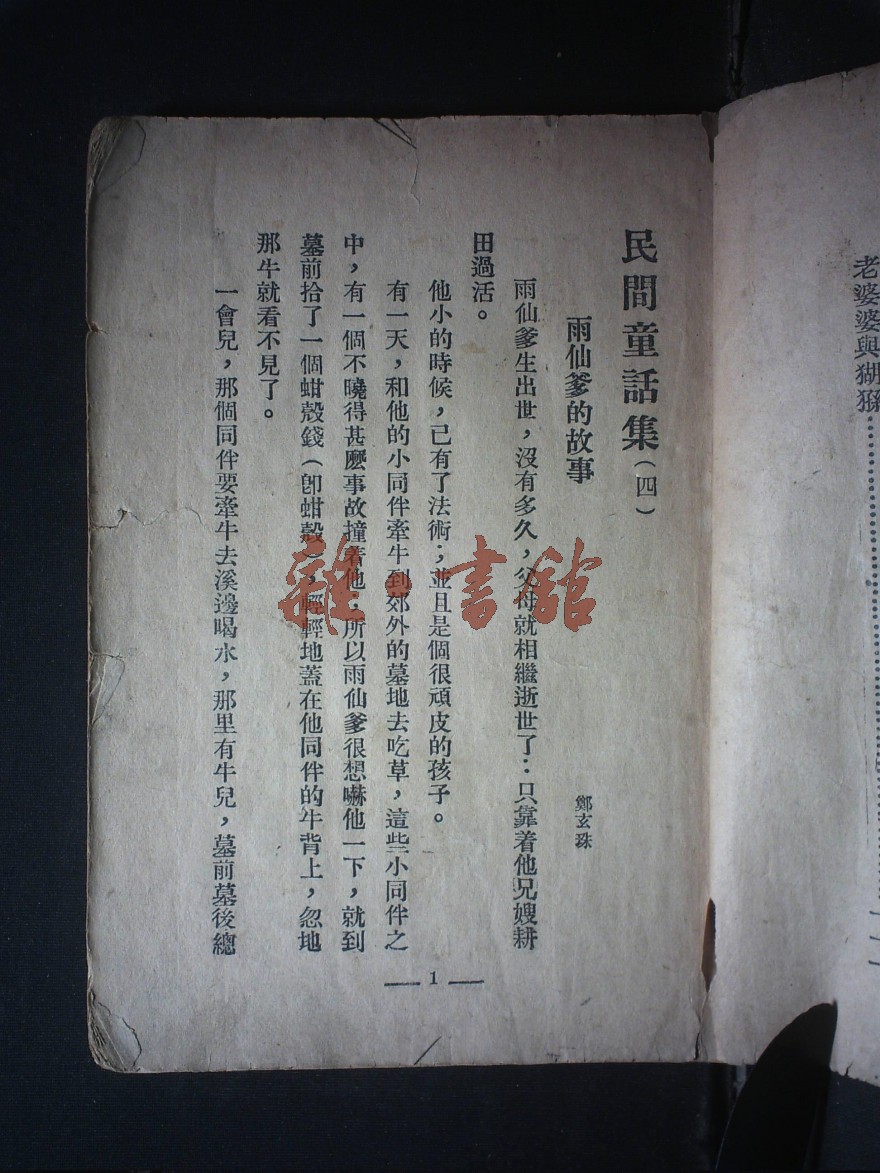 老婆婆與猢猻
民間童話集(四)
雨仙爹的故事
鄭玄珠
雨仙爹生出世,沒有多久,父母就相繼逝世了:只靠着他兄嫂耕
田過活。
他小的時候,已有了法術;並且是個很頑皮的孩子。
有一天,和他的小同伴牽牛到郊外的墓地去吃草,這些小同伴之
中,有一個不曉得甚麼事故撞着他,所以雨仙爹很想嚇他一下,就到
墓前拾了一個蚶殼錢(卽蚶殼),輕輕地蓋在他同伴的牛背上,忽地
那牛就看不見了。
一會兒,那個同伴要牽牛去溪邊喝水,那里有牛兒,墓前墓後總
1
雜·書館